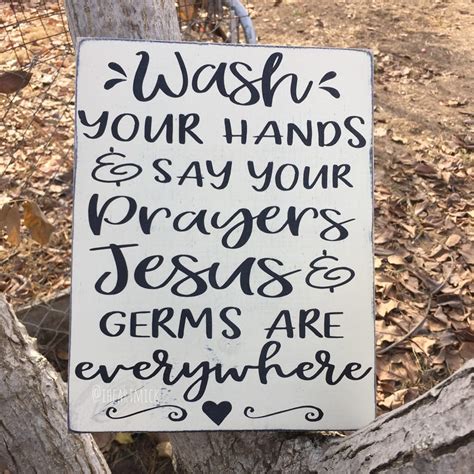 Wash
YOUR HANDS
& SAY YOUR
Prayers
Jesus &
GERMS ARE
everywhere